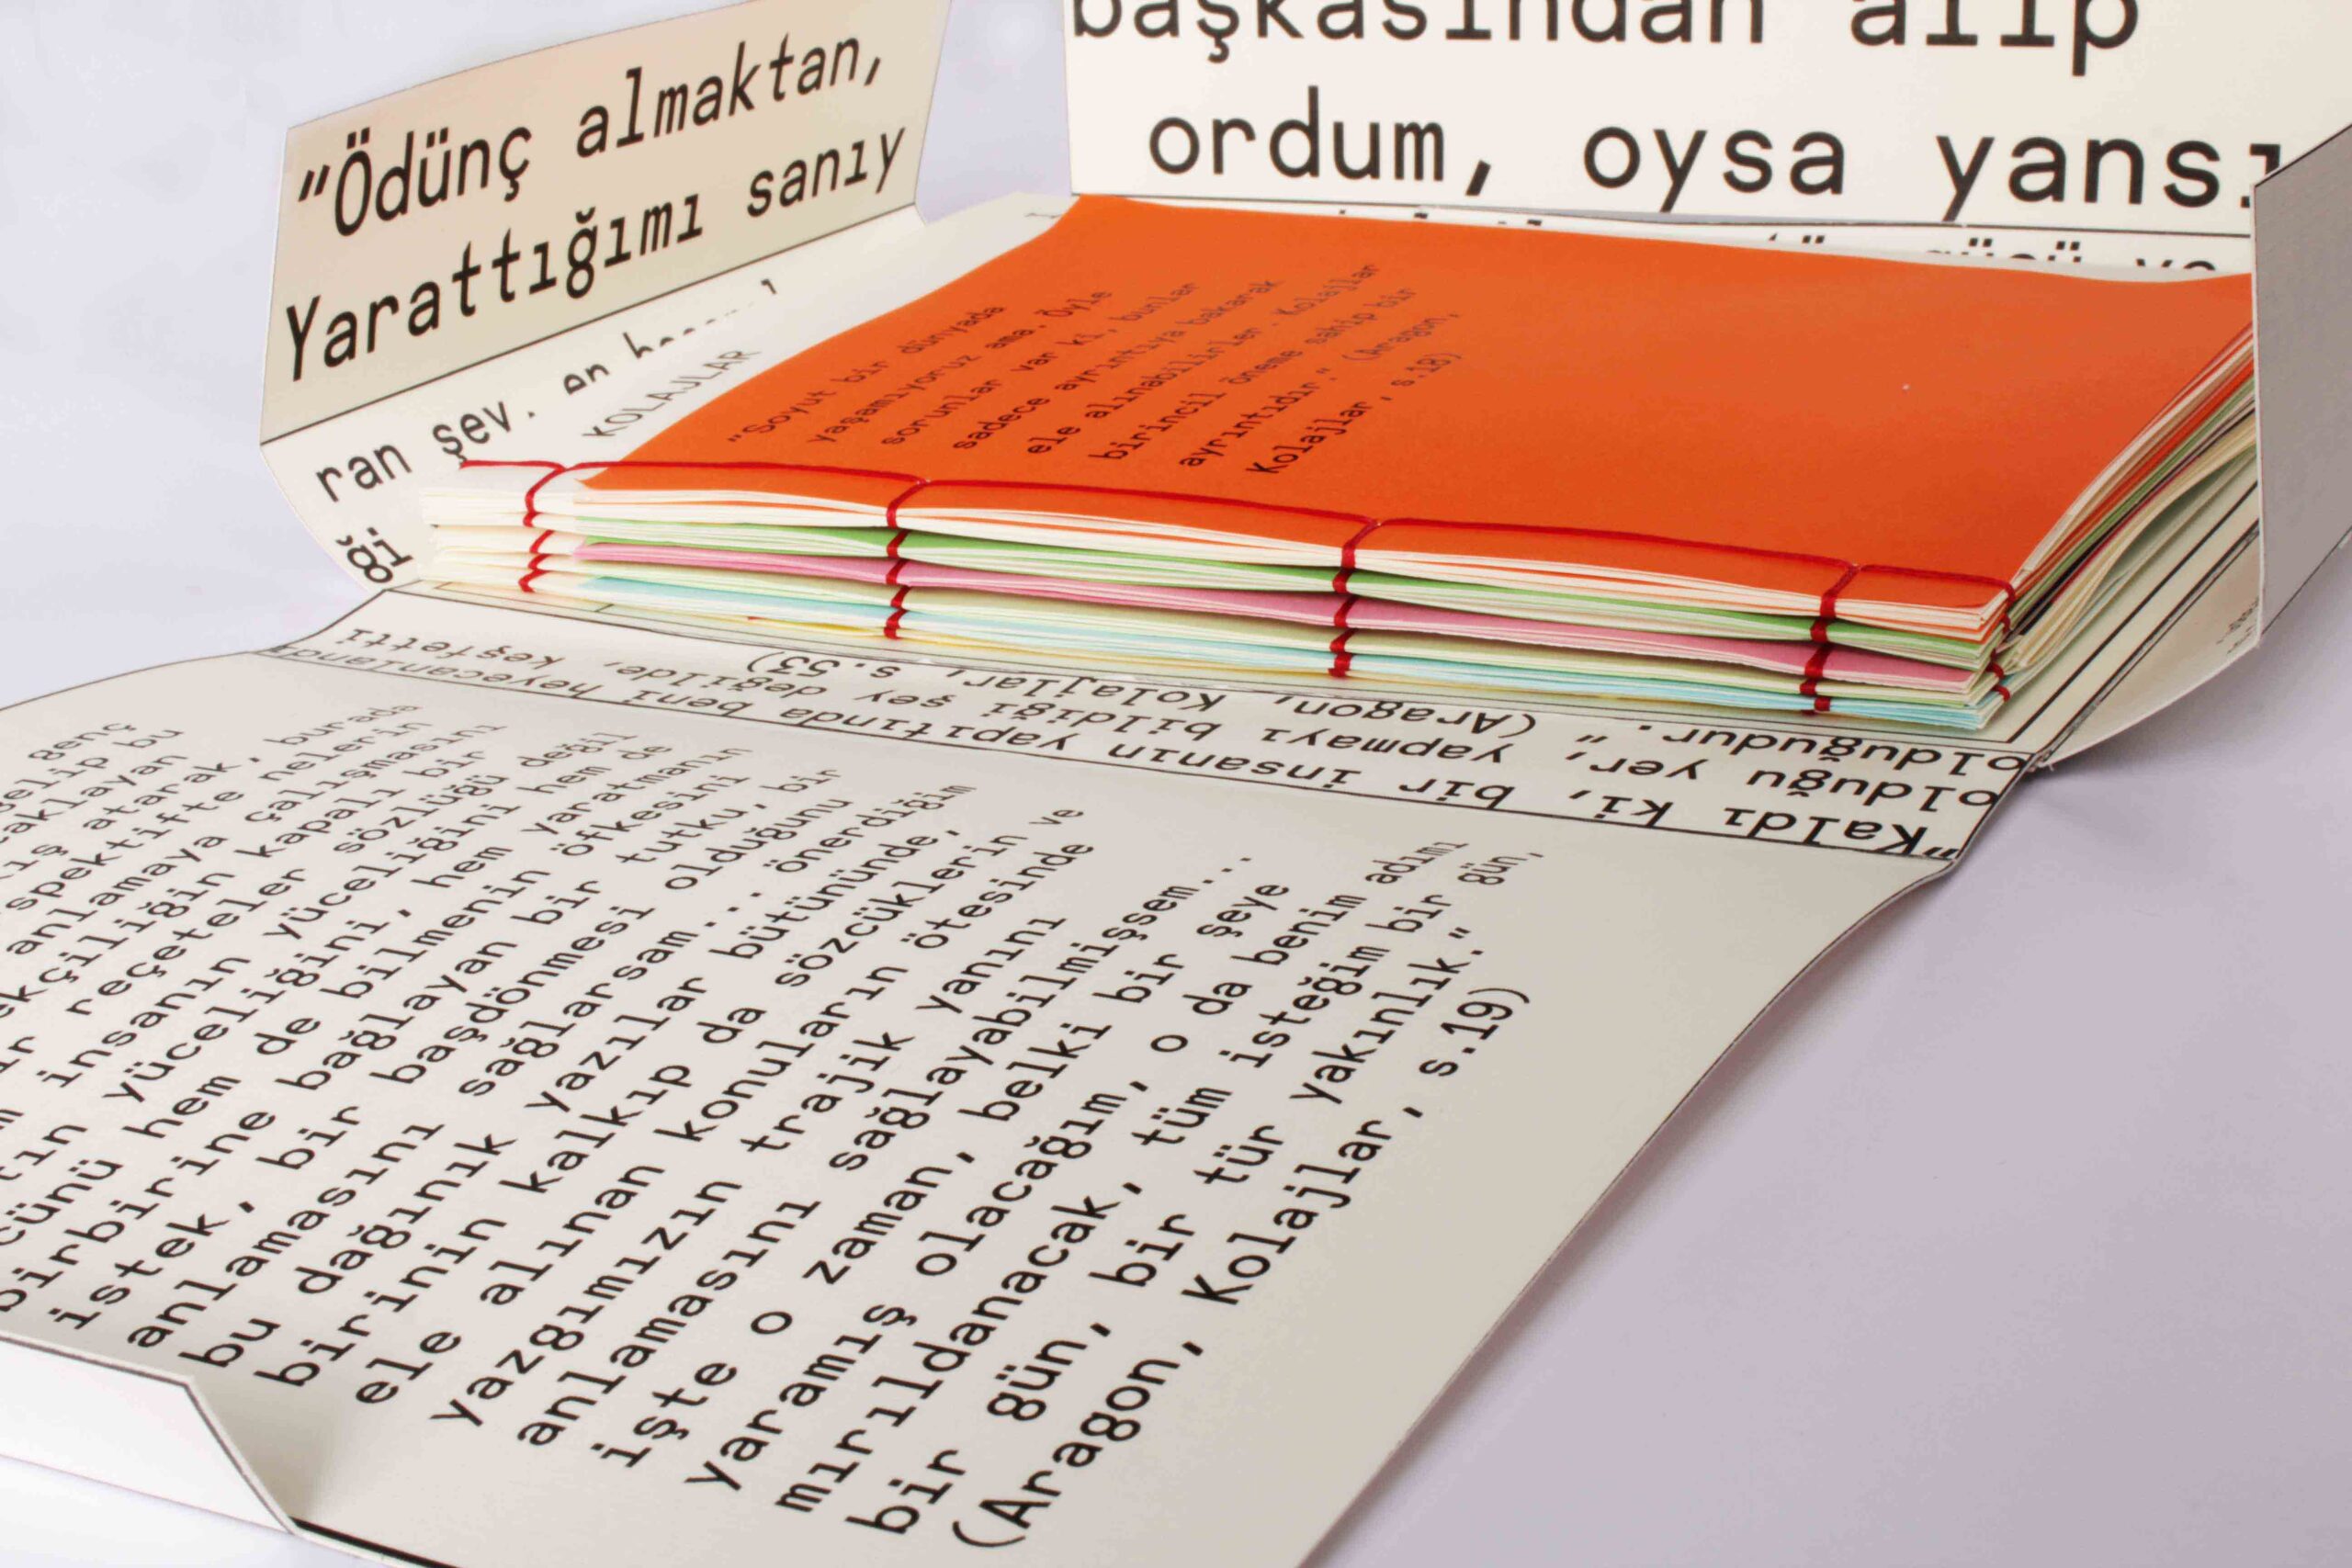 "Ödünç almaktan,
Yarattığımı sanıy
başkasından alıp
ordum, oysa yansı
ran şey.
ği
KOLAJLAR
"Soyut bir dünyada
yaşamıyoruz ama. Öyle
sorunlar var ki, bunlar
sadece ayrıntıya bakarak
ele alınabilirler. Kolajlar
birincil öneme sahip bir
ayrıntıdır." (Aragon,
Kolajlar, s.18)
"Kaldı ki, bir insanın yapıtında beni heyecanland
olduğu yer, yapmayı bildiği şey değilde, keşfetti
olduğudur." (Aragon, Kolajlar, s.53)
genç
gelip bu
aklayan
ış atarak, burada
spektifte nelerin
anlamaya çalışmasını
ekçiliğin kapalı bir
ir reçeteler sözlüğü değil
insanın yüceliğini hem de
tın yüceliğini, hem yaratmanın
cünü hem de bilmenin öfkesini
birbirine bağlayan bir tutku, bir
istek, bir başdönmesi olduğunu
anlamasını sağlarsam... önerdiğim
bu dağınık yazılar bütününde,
birinin kalkıp da sözcüklerin ve
ele alınan konuların ötesinde
yazgımızın trajik yanını
anlamasını sağlayabilmişsem...
işte o zaman, belki bir şeye
yaramış olacağım, o da benim adımı
mırıldanacak, tüm isteğim bir gün,
bir gün, bir tür yakınlık."
(Aragon, Kolajlar, s.19)